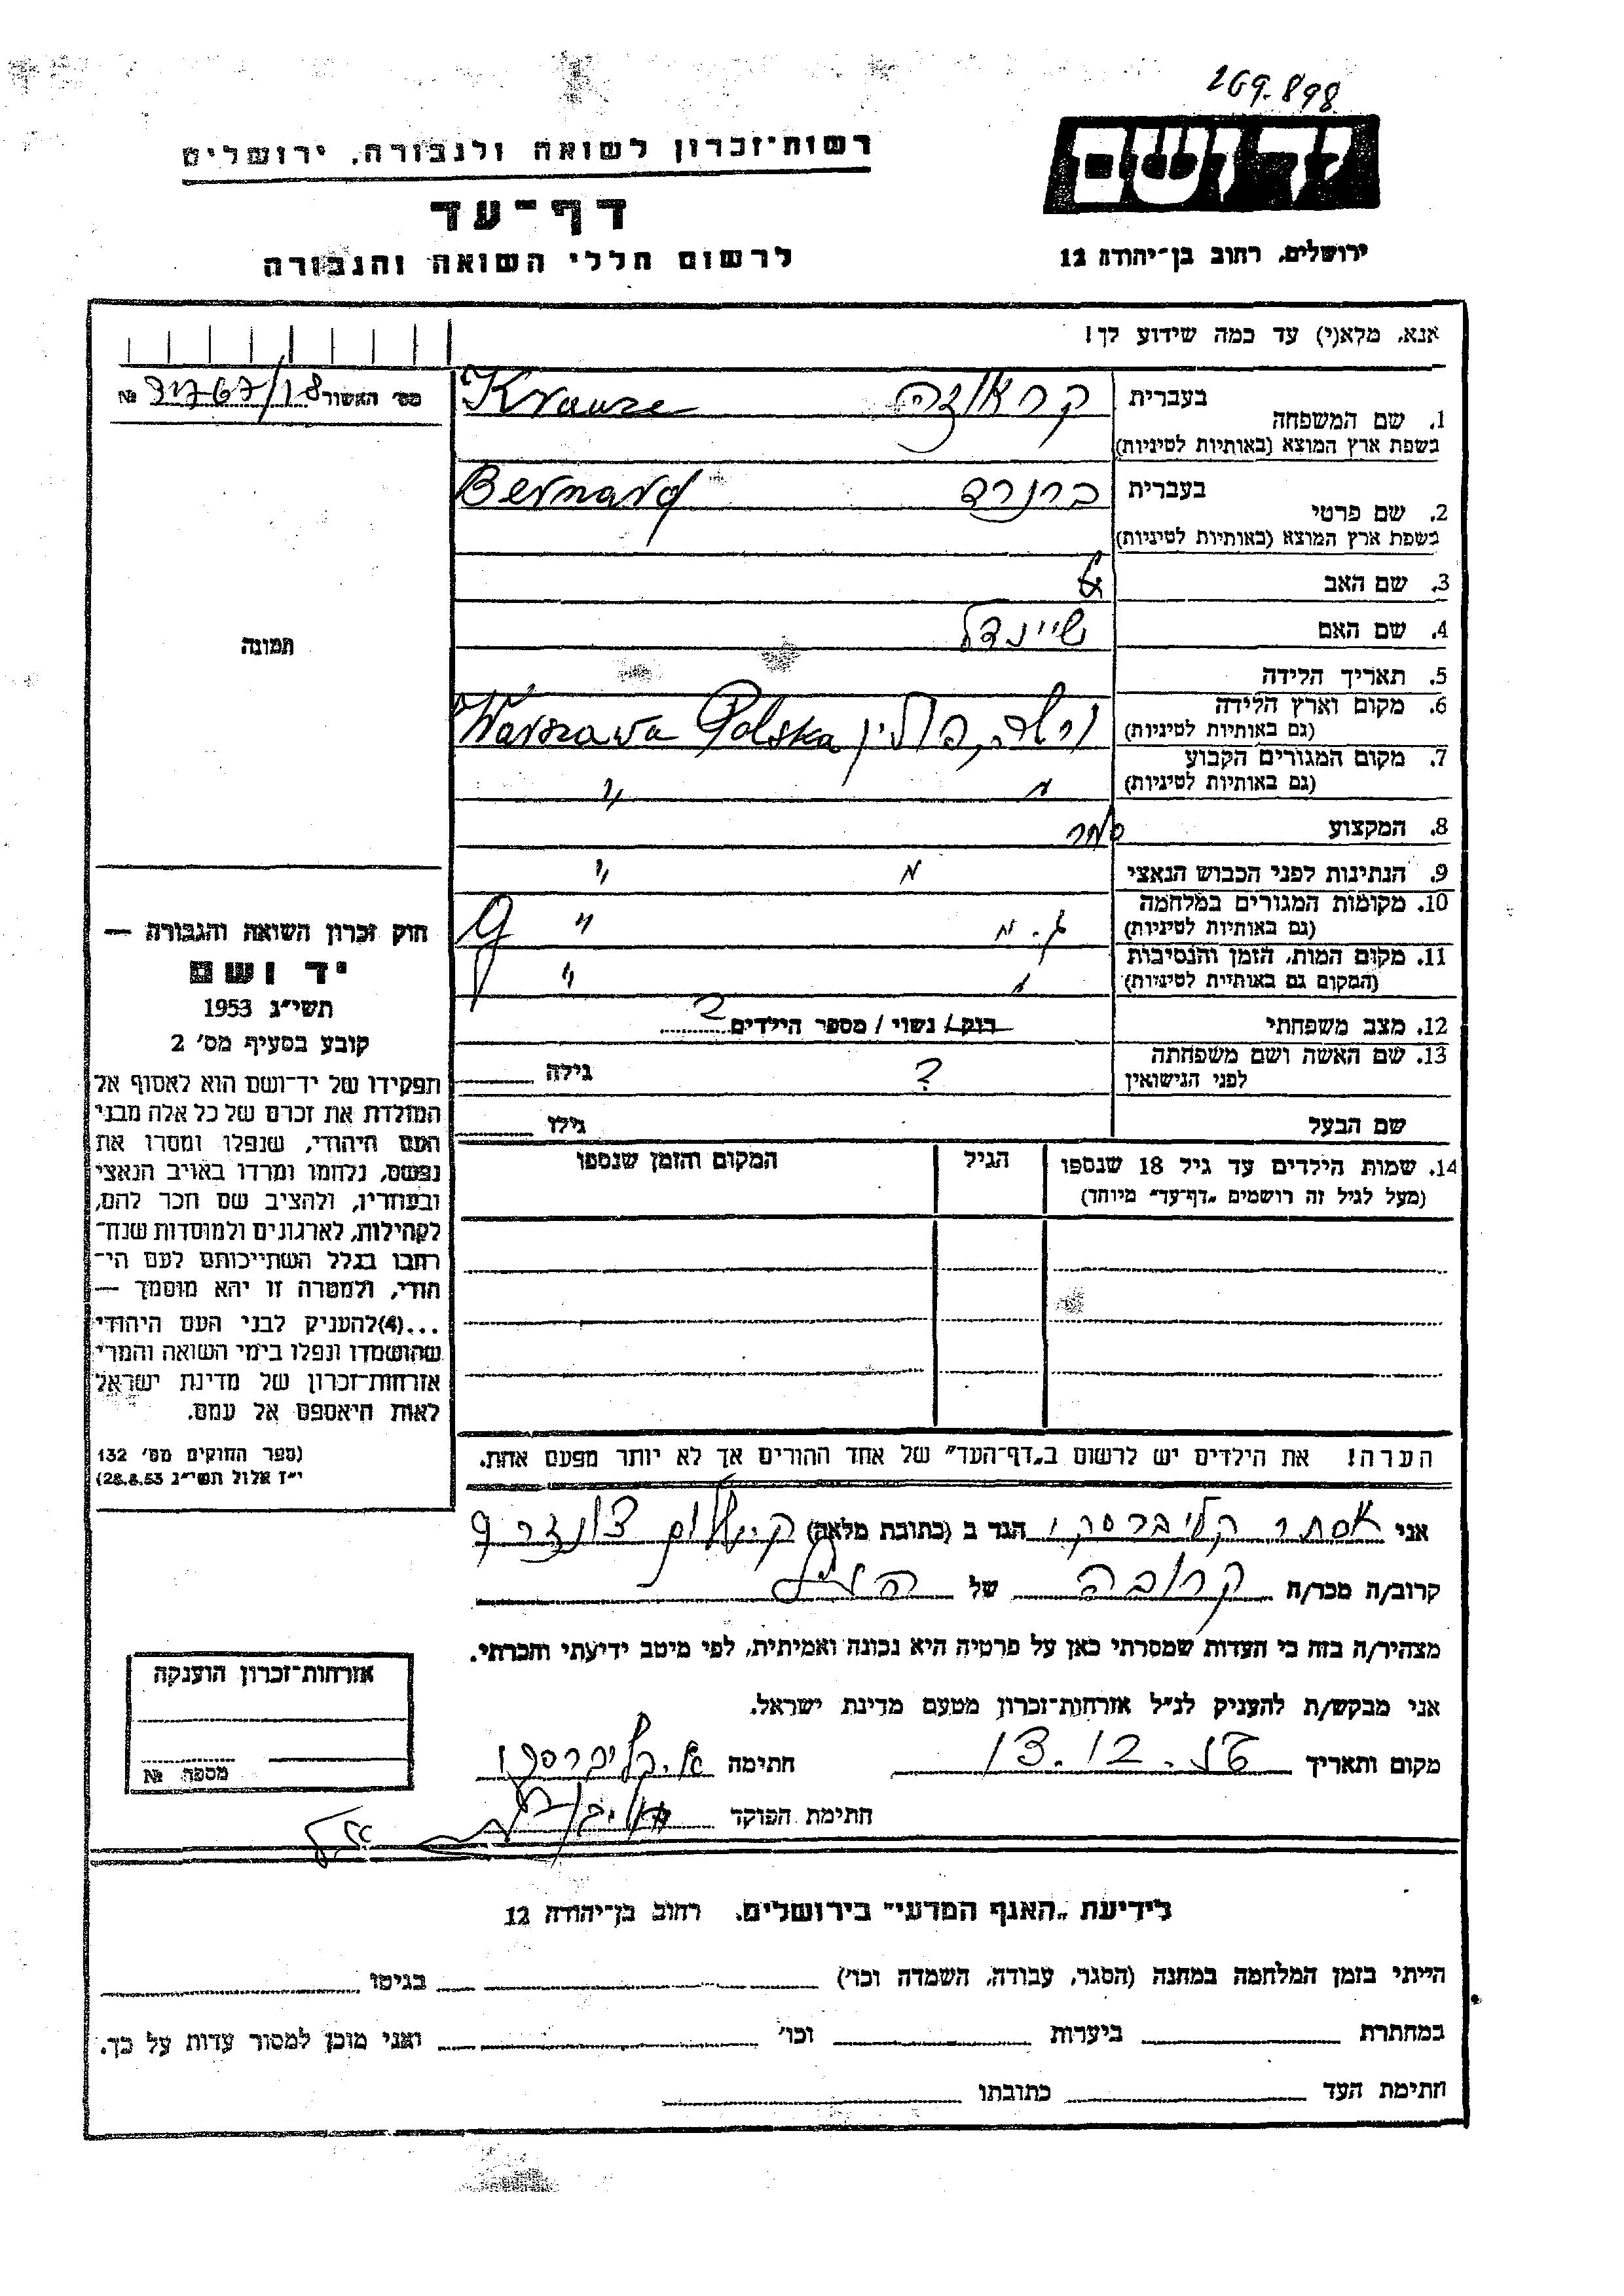 269.898
יד ושם
רשות־זכרון לשואה ולגבורה, ירושלים
דף־עד
לרשום חללי השואה והגבורה
ירושלים, רחוב בן־יהודה 12
אנא, מלא(י) עד כמה שידוע לך!
מס׳ האשור 31767/18 №
1. שם המשפחה בעברית קראוזה Krauze
בשפת ארץ המוצא (באותיות לטיניות)
2. שם פרטי בעברית ברנרד Bernard
בשפת ארץ המוצא (באותיות לטיניות)
3. שם האב
4. שם האם שיינדל
5. תאריך הלידה
6. מקום וארץ הלידה ורשה, פולין Warszawa Polska
(גם באותיות לטיניות)
7. מקום המגורים הקבוע
(גם באותיות לטיניות) " "
8. המקצוע סוחר
9. הנתינות לפני הכבוש הנאצי " "
10. מקומות המגורים במלחמה
(גם באותיות לטיניות) "
11. מקום המות, הזמן והנסיבות
(המקום גם באותיות לטיניות) " "
12. מצב משפחתי רווק / נשוי / מספר הילדים 2
13. שם האשה ושם משפחתה
לפני הנישואין ? גילה
שם הבעל גילו
14. שמות הילדים עד גיל 18 שנספו
(מעל לגיל זה רושמים „דף־עד״ מיוחד)
הגיל
המקום והזמן שנספו
הערה! את הילדים יש לרשום ב„דף־העד״ של אחד ההורים אך לא יותר מפעם אחת.
תמונה
חוק זכרון השואה והגבורה —
יד ושם
תשי״ג 1953
קובע בסעיף מס׳ 2
תפקידו של יד־ושם הוא לאסוף אל
המולדת את זכרם של כל אלה מבני
העם היהודי, שנפלו ומסרו את
נפשם, נלחמו ומרדו באויב הנאצי
ובעוזריו, ולהציב שם וזכר להם,
לקהילות, לארגונים ולמוסדות שנח־
רבו בגלל השתייכותם לעם הי־
הודי, ולמטרה זו יהא מוסמך —
...(4) להעניק לבני העם היהודי
שהושמדו ונפלו בימי השואה והמרי
אזרחות־זכרון של מדינת ישראל
לאות היאספם אל עמם.
(ספר החוקים מס׳ 132
י״ז אלול תשי״ג 28.8.53)
אני אסתר קליברסקי הגר ב (כתובת מלאה)
קרוב/ה מכר/ה קרובה של הנ״ל
מצהיר/ה בזה כי העדות שמסרתי כאן על פרטיה היא נכונה ואמיתית, לפי מיטב ידיעתי והכרתי.
אני מבקש/ת להעניק לנ״ל אזרחות־זכרון מטעם מדינת ישראל.
מקום ותאריך 13.12.56 חתימה א. קליברסקי
חתימת הפוקד
אזרחות־זכרון הוענקה
מספר №
לידיעת „האגף המדעי״ בירושלים, רחוב בן־יהודה 12
הייתי בזמן המלחמה במחנה (הסגר, עבודה, השמדה וכו׳) בגיטו
במחתרת ביערות וכו׳ ואני מוכן למסור עדות על כך.
חתימת העד כתובתו